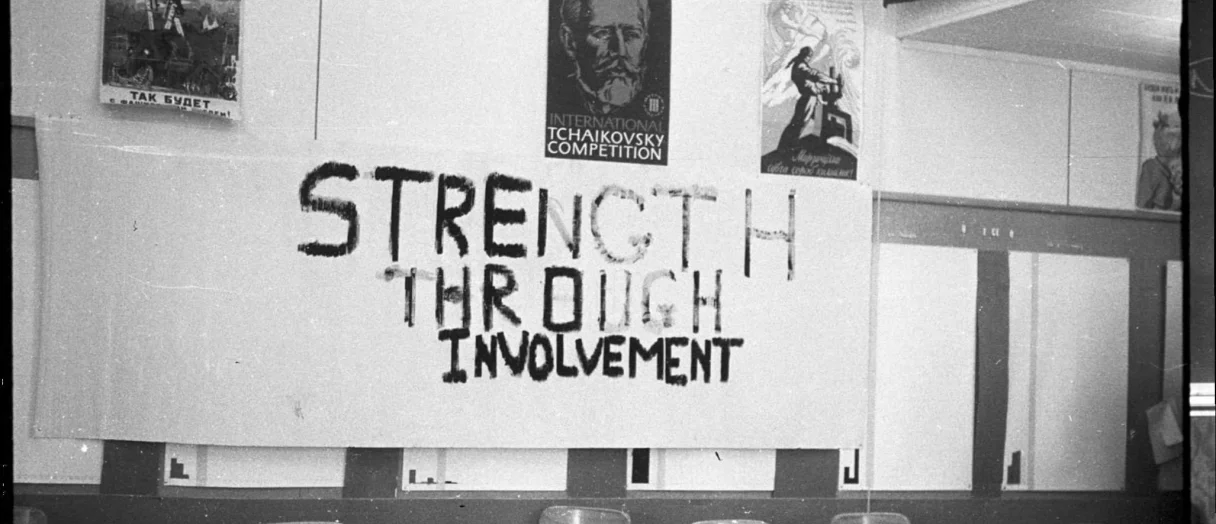 ТАК БУДЕТ
С ФАШИСТСКОЙ
INTERNATIONAL
TCHAIKOVSKY
COMPETITION
III
STRENGTH
THROUGH
INVOLVEMENT